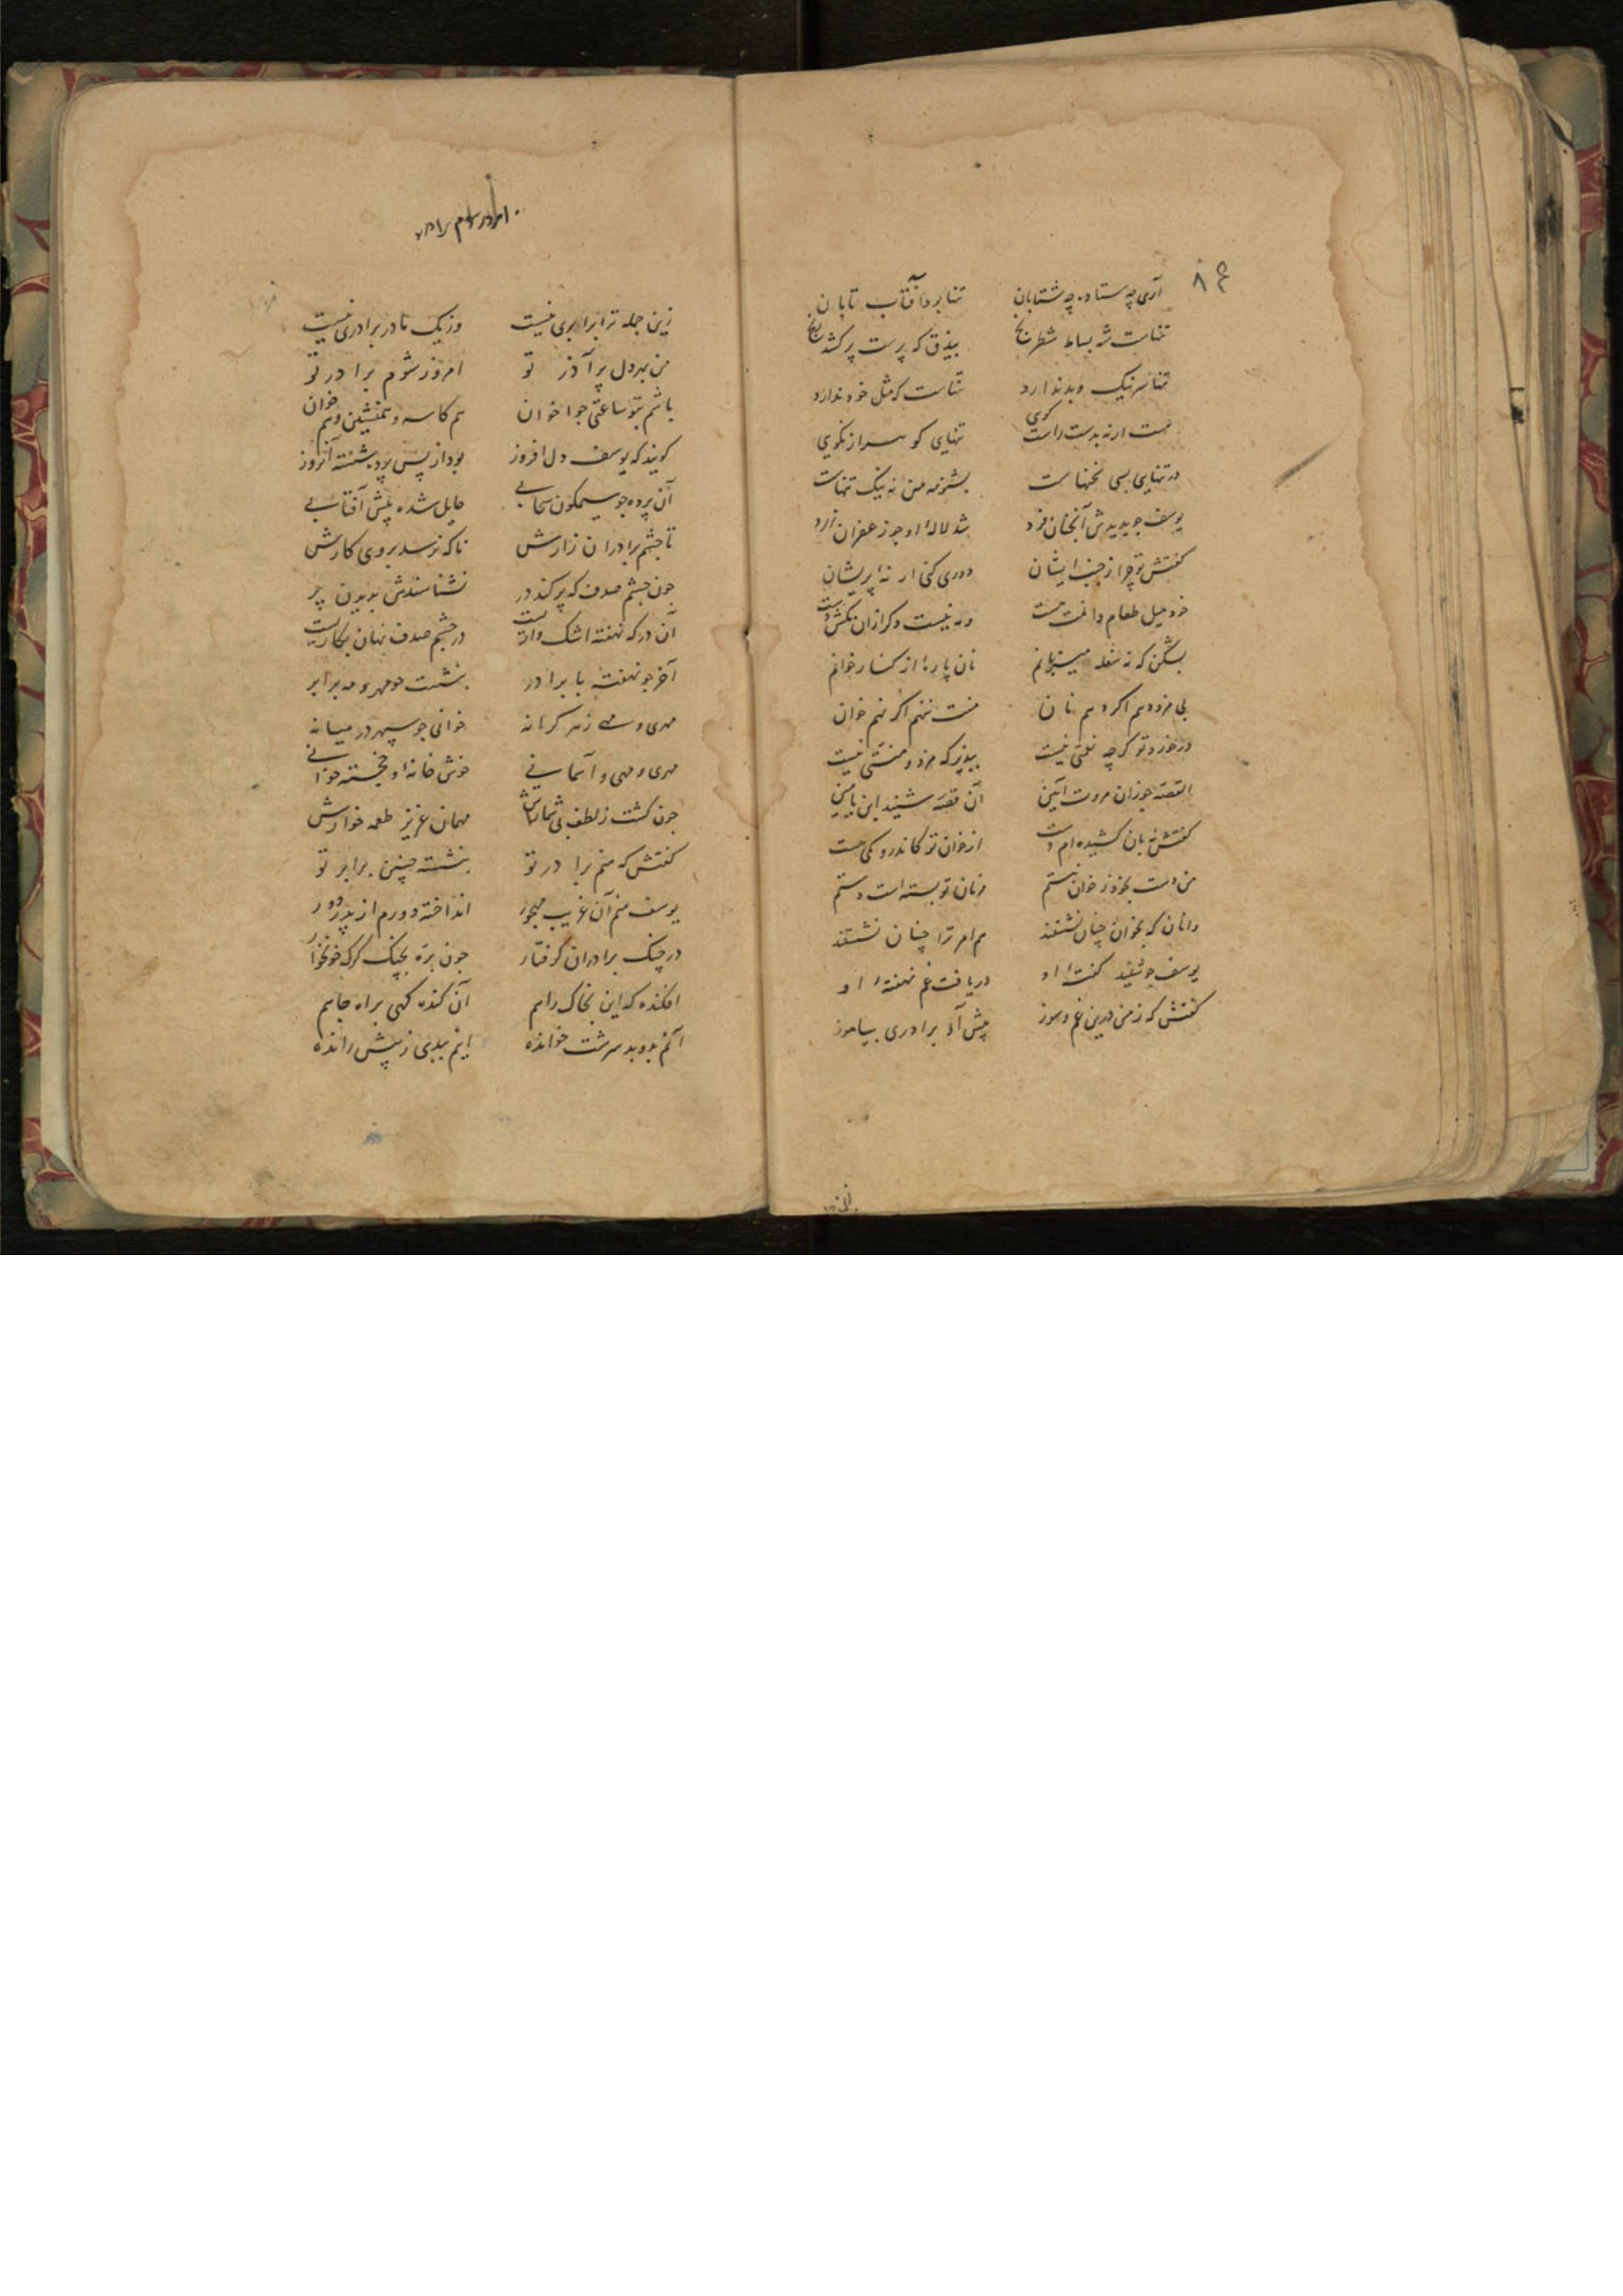 ۸۴
آری چه ستاده چه شتابان تنها بود آفتاب تابان
تنهاست شه بساط شطرنج بیذق که پرست پر کشد رنج
تنها سر نیک و بد ندارد تنهاست که مثل خود ندارد
تنهایی کو سر از نکویی
در تنهایی بسی سخنهاست بشنو نه من نه نیک تنهاست
یوسف چو بدیدش آنچنان فرد شد لاله او چو زعفران زرد
کفتش تو چرا ز جنب ایشان دوری کنی ار نه پریشان
خود میل طعام و نیست دکر ازان
بشکن که نه سفله میزبانم نان پاره از کنار خوانم
بی مزد دهم اکر دهم نان منت ننهم اکر نهم خوان
در خورد تو کرچه نعمتی نیست بپذیر که مزد و منتی نیست
القصه چو زان مروت آیین آن قصه شنید ابن یامین
کفتش نه بان کشیده ام دست از خوان تو کاندرو کمی هست
من دست بخود ز خوان نبستم نان تو بسته است دستم
وانان که بخوان چنان نشستند هم امر ترا چنان نشستند
یوسف چو شنید کفته او دریافت غم نهفته او
کفتش که ز من درین غم و سوز پیش آ و برادری بیاموز
زین جمله
امروز شوم برادر
زین جمله ترا برابری نیست وز یک مادر برادری نیست
من بهر دل پر آذر تو امروز شوم برادر تو
باشم بتو ساعتی چو اخوان هم کاسه و همنشین و هم خوان
کویند که یوسف دل افروز بود از پس پرده شسته آنروز
آن پرده چو سیمکون سحابی حایل شده پیش آفتابی
تا چشم برادران زارش ناکه نرسد بروی کارش
چون چشم صدف که پر کند در نشناسندش بدیدن پر
آن در که نهفته اشک وارست در چشم صدف نهان بکارست
آخر چو نهفته با برادر بنشست چو مهر و مه برابر
مهری و مهی ز هر کرانه خوانی چو سپهر در میانه
مهری و مهی و آسمانی خوش خانه و خجسته خوانی
چون کشت ز لطف بی شمارش مهمان عزیز طعمه خوارش
کفتش که منم برادر تو بنشسته چنین برابر تو
یوسف منم آن غریب مهجور انداخته دورم از پدر دور
در چنک برادران کرفتار چون بره بچنک کرک خونخوار
افکنده که این بخاک راهم آن کنده کهی براه چاهم
آنم بد و بد سرشت خوانده اینم ببدی ز پیش رانده